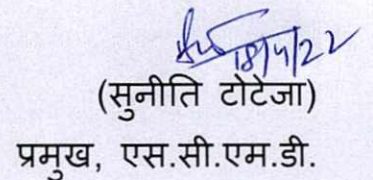 18/4/22
(सुनीति टोटेजा)
प्रमुख, एस.सी.एम.डी.